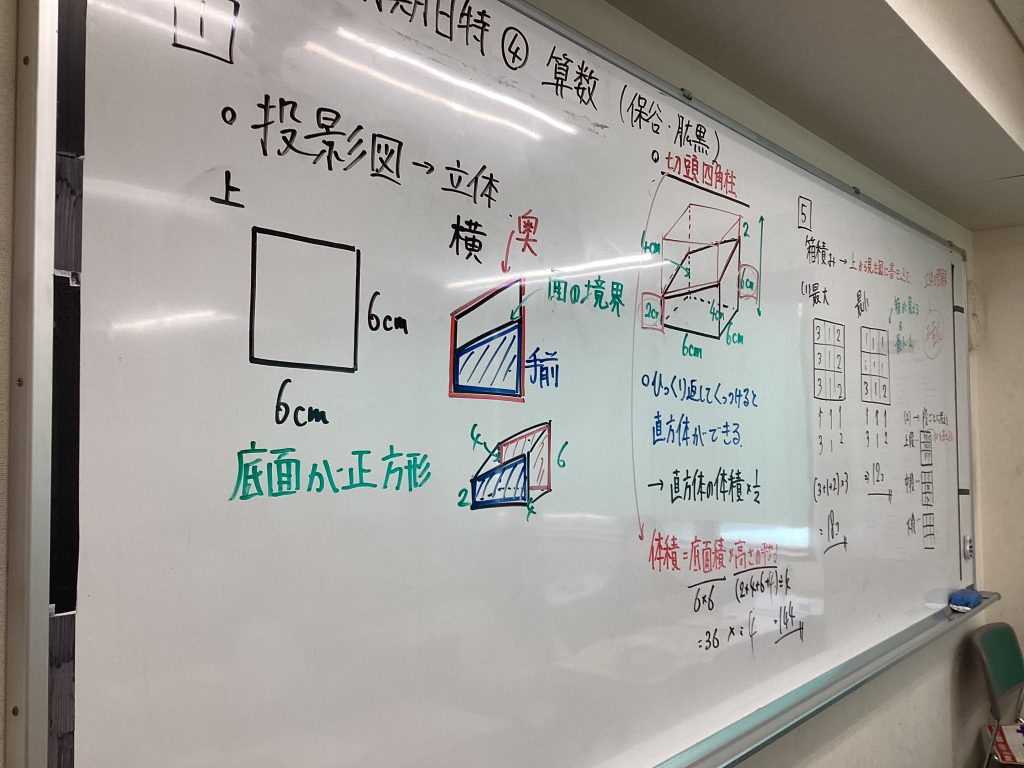 1
期日特④ 算数 (保谷・
○投影図→立体
上
6cm
6cm
底面が正方形
横
奥
面の境界
手前
4
6
2
4
○切頭四角柱
4cm
2
6cm
2cm
4cm
6cm
6cm
○ひっくり返してくっつけると
直方体ができる
→直方体の体積×1/2
体積=底面積×高さの平均
6×6 (2+4+6+4)÷4
=36 × 4 =144
5
箱積み→上から見た図に書き込む
(1)最大
最小
3 1 2
3 1 2
3 1 2
↑ ↑ ↑
3 1 2
(3+1+2)×3
=18コ
1 1 1
3 1 2
↑ ↑ ↑
3 1 2
⇒12コ
(2)→
上段→
中段→
下段→